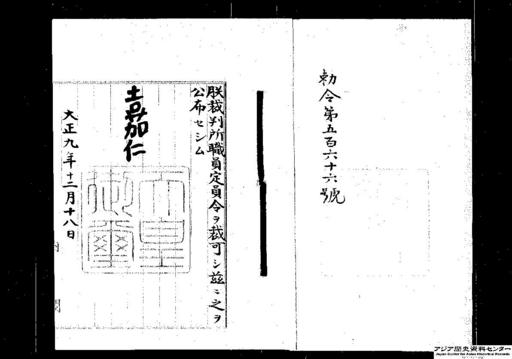 勅令第五百六十六號
朕裁判所職員定員令ヲ裁可シ茲ニ之ヲ
公布セシム
嘉仁
天皇
御璽
大正九年十二月十八日
内閣
アジア歴史資料センター
Japan Center for Asian Historical Records